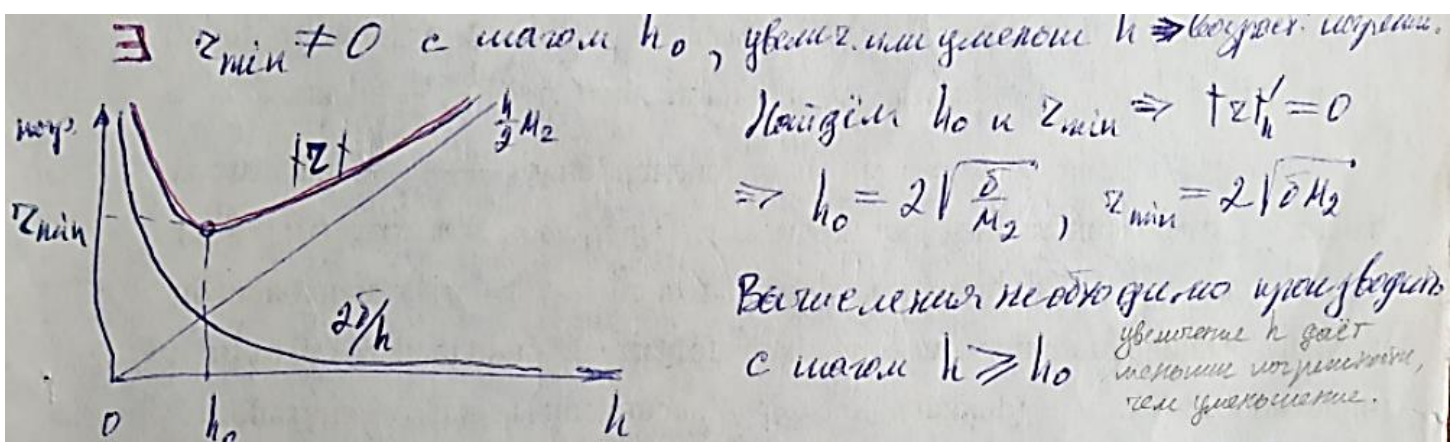 ∃ r_min ≠ 0 с шагом h₀, увелич. или уменьш h ⇒ возраст. погрешн.
погр.
|r|
h/2 M₂
Найдём h₀ и r_min ⇒ |r|'_h = 0
r_min
⇒ h₀ = 2√(δ/M₂), r_min = 2√(δM₂)
2δ/h
Вычисления необходимо производить
с шагом h ≥ h₀
увеличение h даёт
меньшие погрешности,
чем уменьшение.
0 h₀ h